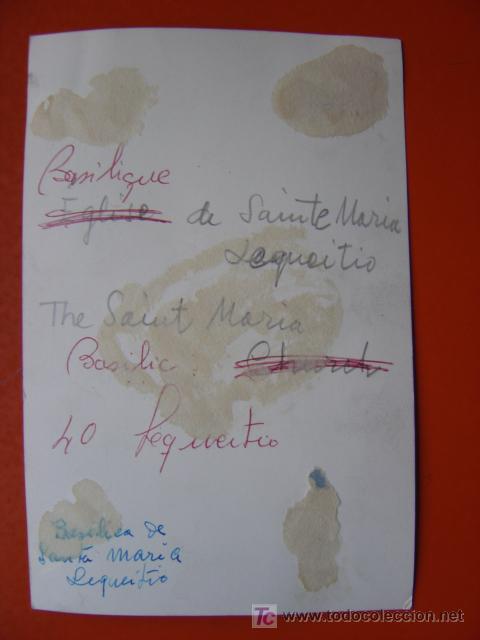 Basilique
Eglise de Sainte Maria
Lequeitio
The Saint Maria
Basilic Church
40 Lequeitio
Basilica de
Santa Maria
Lequeitio
TC www.todocoleccion.net